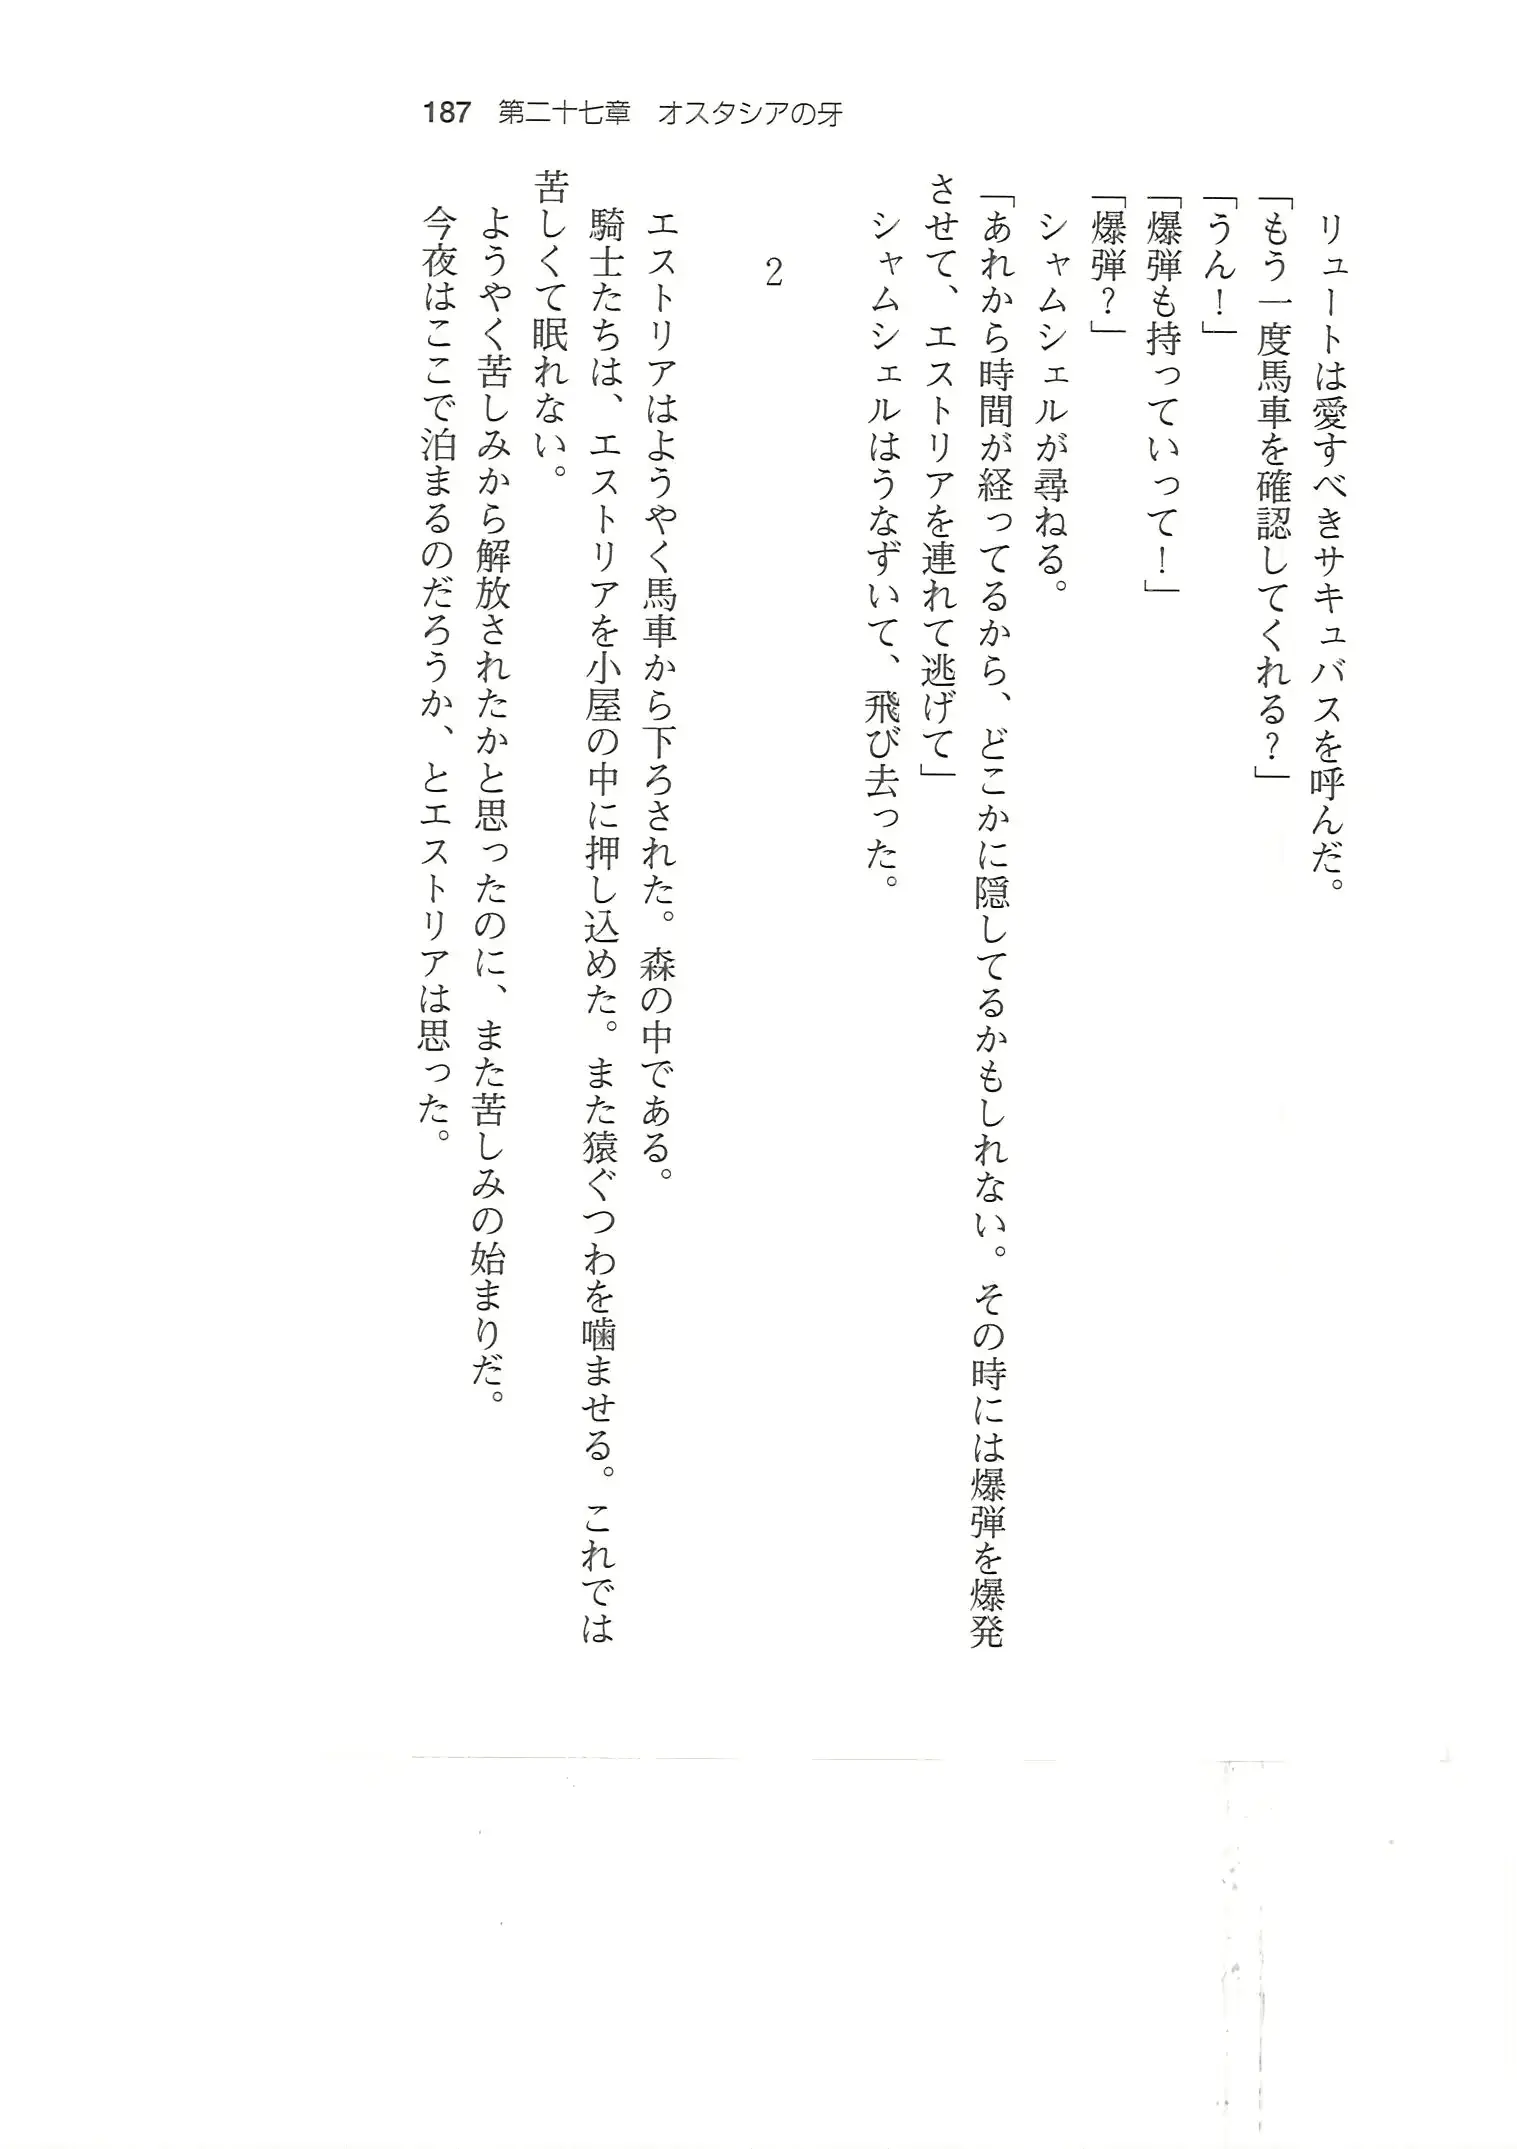 187 第二十七章 オスタシアの牙
リュートは愛すべきサキュバスを呼んだ。
「もう一度馬車を確認してくれる？」
「うん！」
「爆弾も持っていって！」
「爆弾？」
シャムシェルが尋ねる。
「あれから時間が経ってるから、どこかに隠してるかもしれない。その時には爆弾を爆発
させて、エストリアを連れて逃げて」
シャムシェルはうなずいて、飛び去った。
2
エストリアはようやく馬車から下ろされた。森の中である。
騎士たちは、エストリアを小屋の中に押し込めた。また猿ぐつわを噛ませる。これでは
苦しくて眠れない。
ようやく苦しみから解放されたかと思ったのに、また苦しみの始まりだ。
今夜はここで泊まるのだろうか、とエストリアは思った。